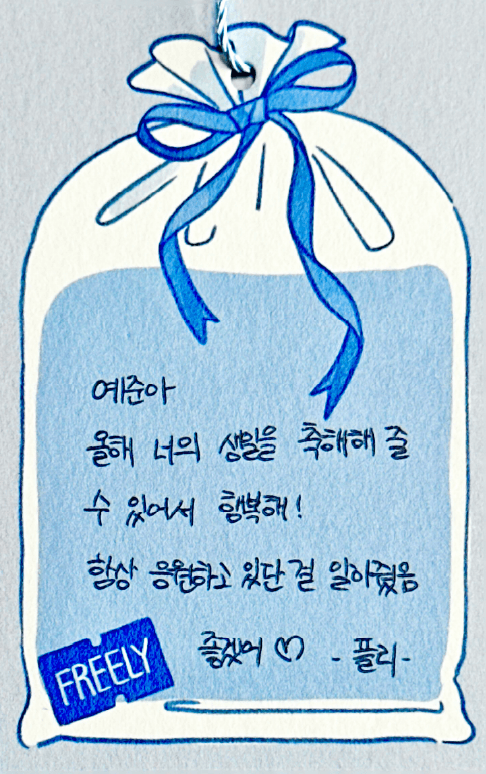 예준아
올해 너의 생일을 축해해 줄
수 있어서 행복해!
항상 응원하고 있단 걸 알아줬음
좋겠어 ♡ - 플리-
FREELY